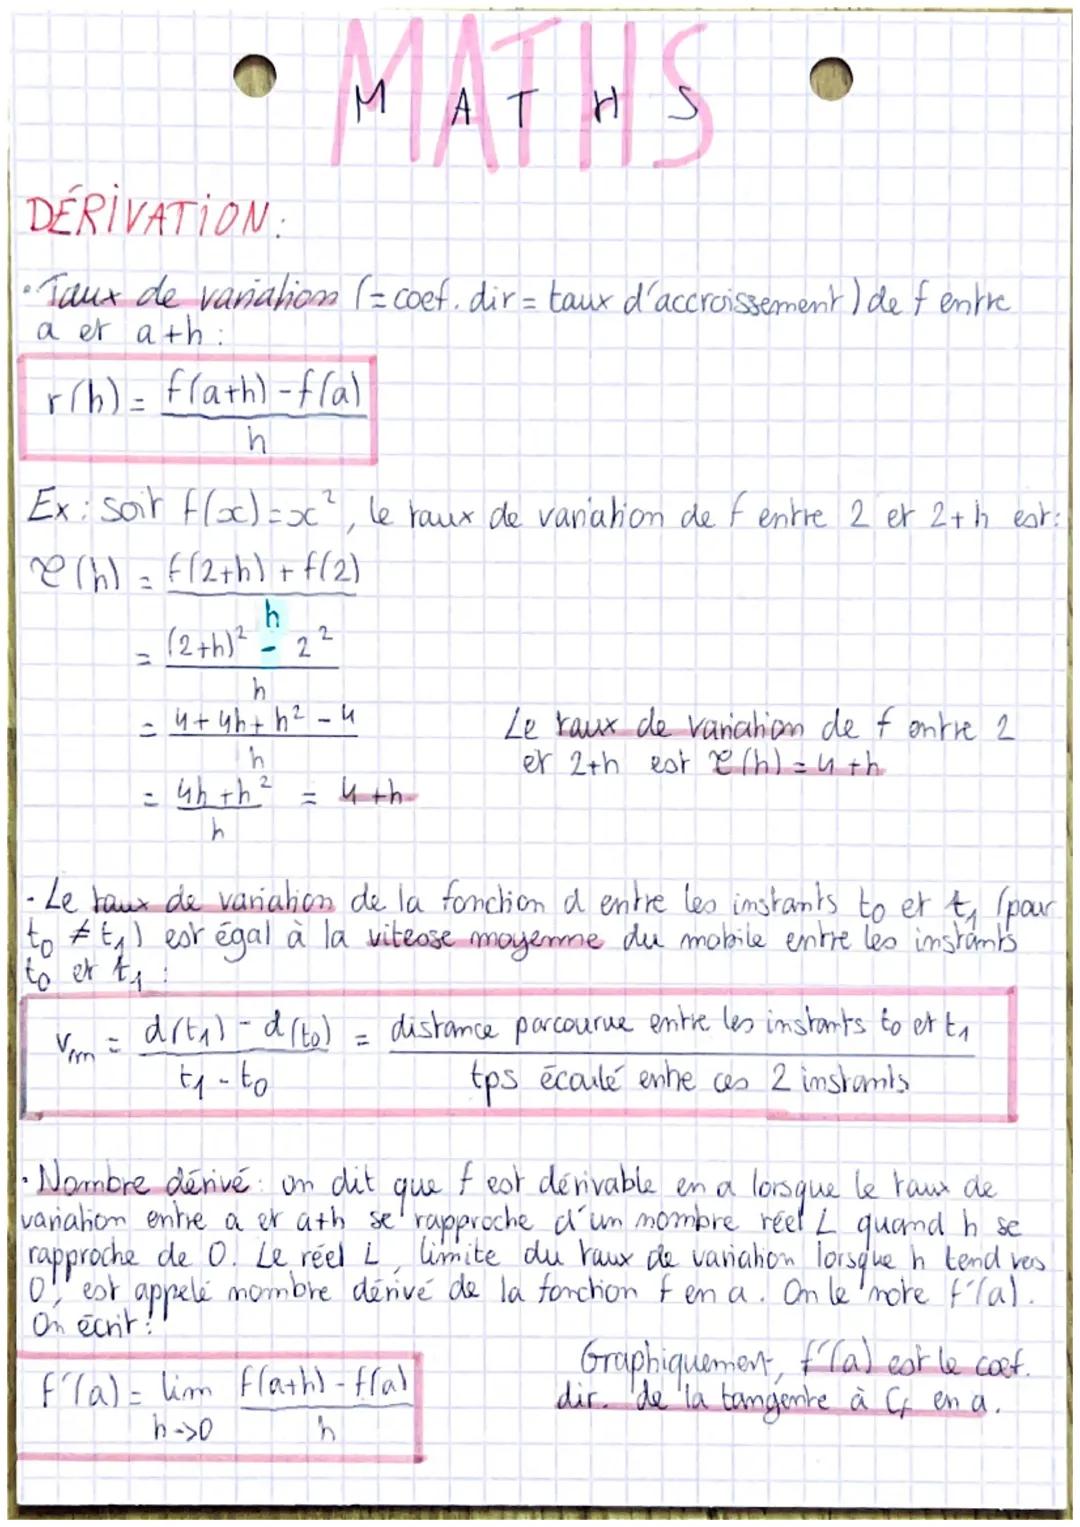 MATHS
M A T H S
DÉRIVATION:
• Taux de variation (= coef. dir = taux d'accroissement) de f entre
a et a+h :
r(h) = f(a+h) - f(a)
h
Ex : soit f(x) = x², le taux de variation de f entre 2 et 2+h est :
τ(h) = f(2+h) + f(2)
h
= (2+h)² - 2²
h
= 4 + 4h + h² - 4
h
= 4h + h² = 4 + h
h
Le taux de variation de f entre 2
et 2+h est τ(h) = 4 + h
• Le taux de variation de la fonction d entre les instants t₀ et t₁ (pour
t₀ ≠ t₁) est égal à la vitesse moyenne du mobile entre les instants
t₀ et t₁ :
Vm = d(t₁) - d(t₀) = distance parcourue entre les instants t₀ et t₁
t₁ - t₀ tps écoulé entre ces 2 instants
• Nombre dérivé : on dit que f est dérivable en a lorsque le taux de
variation entre a et a+h se rapproche d'un nombre réel L quand h se
rapproche de 0. Le réel L, limite du taux de variation lorsque h tend vers
0, est appelé nombre dérivé de la fonction f en a. On le note f'(a).
On écrit :
f'(a) = lim f(a+h) - f(a)
h->0 h
Graphiquement, f'(a) est le coef.
dir. de la tangente à Cf en a.